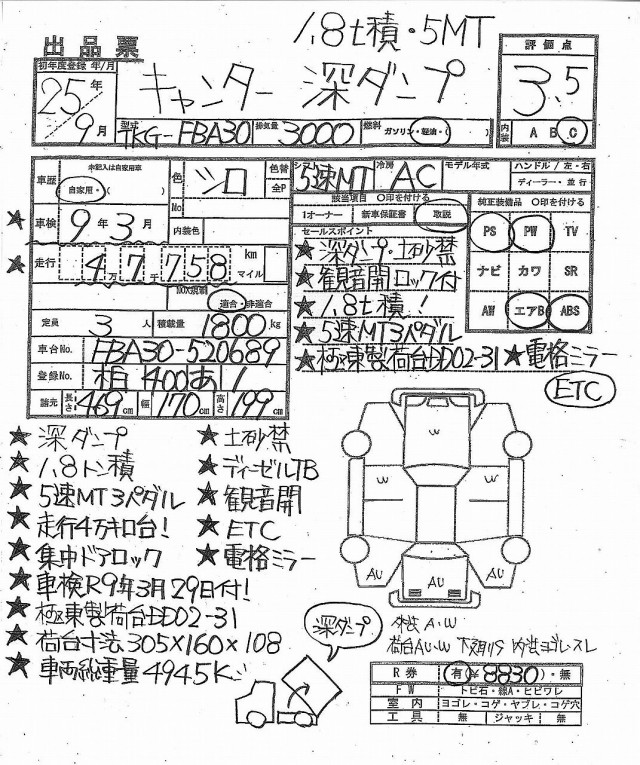 1,8t積・5MT
出品票
初年度登録 年/月
25年
9月
キャンター 深ダンプ
評価点
3.5
内装 A B C
型式 TKG-FBA30 排気量 3000 燃料 ガソリン・軽油・( )
車歴 未記入は自家用車 自家用・( )
色 シロ 色替 全P
No
シフト 5速MT 冷房 AC モデル年式 ハンドル/左・右
ディーラー・並行
★車検 9年3月 内装色
該当項目 〇印を付ける
1オーナー 新車保証書 取説
純正装備品 〇印を付ける
PS PW TV
ナビ カワ SR
AW エアB ABS
★走行 4万7千758 km マイル
NOX規制 適合・非適合
定員 3人 積載量 1800kg
車台No. FBA30-520689
登録No. 相 400あ 1
諸元 長さ 469cm 幅 170cm 高さ 199cm
セールスポイント
★深ダンプ・土砂禁
★観音開ロック付
★1,8t積!
★5速MT3ペダル
★極東製荷台DD02-31 ★電格ミラー
ETC
★深ダンプ ★土砂禁
★1,8トン積 ★ディーゼルTB
★5速MT3ペダル ★観音開
★走行4万キロ台! ★ETC
★集中ドアロック ★電格ミラー
★車検R9年3月29日付!
★極東製荷台DD02-31
★荷台寸法305×160×108
★車両総重量4945K
W
W W
AU AU AU
深ダンプ
外装 A・W
荷台AU・W 下廻りS 内装ヨゴレ・スレ
R券 有(¥8830)・無
FW トビ石・線A・ヒビワレ
室内 ヨゴレ・コゲ・ヤブレ・コゲ穴
工具 無 ジャッキ 無